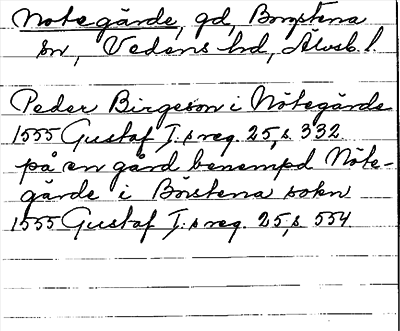 Nötegärde, gd, Borgstena
sn, Vedens hd, Älvsb. l.
Peder Birgeson i Nötegärde
1555 Gustaf I:s reg. 25, s. 332
på en gård benempd Nöte-
gärde i Börstena sokn
1555 Gustaf I:s reg. 25, s. 554